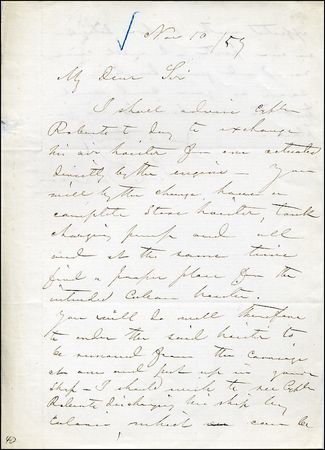 Nov 10 /59
My Dear Sir
I shall advise Capt
Roberts to day to exchange
his air hoister for one actuated
directly by the engine – you
will by the change have a
complete Steam hoister, tank
charging pump and all
and at the same time
find a proper place for the
intended Caloric hoister.
You will do well therefore
to order the said hoister to
be removed from the carriage
at once and put up in your
ship – I should wish to see Capt
Roberts discharging his ship by
Caloric, which can be
40